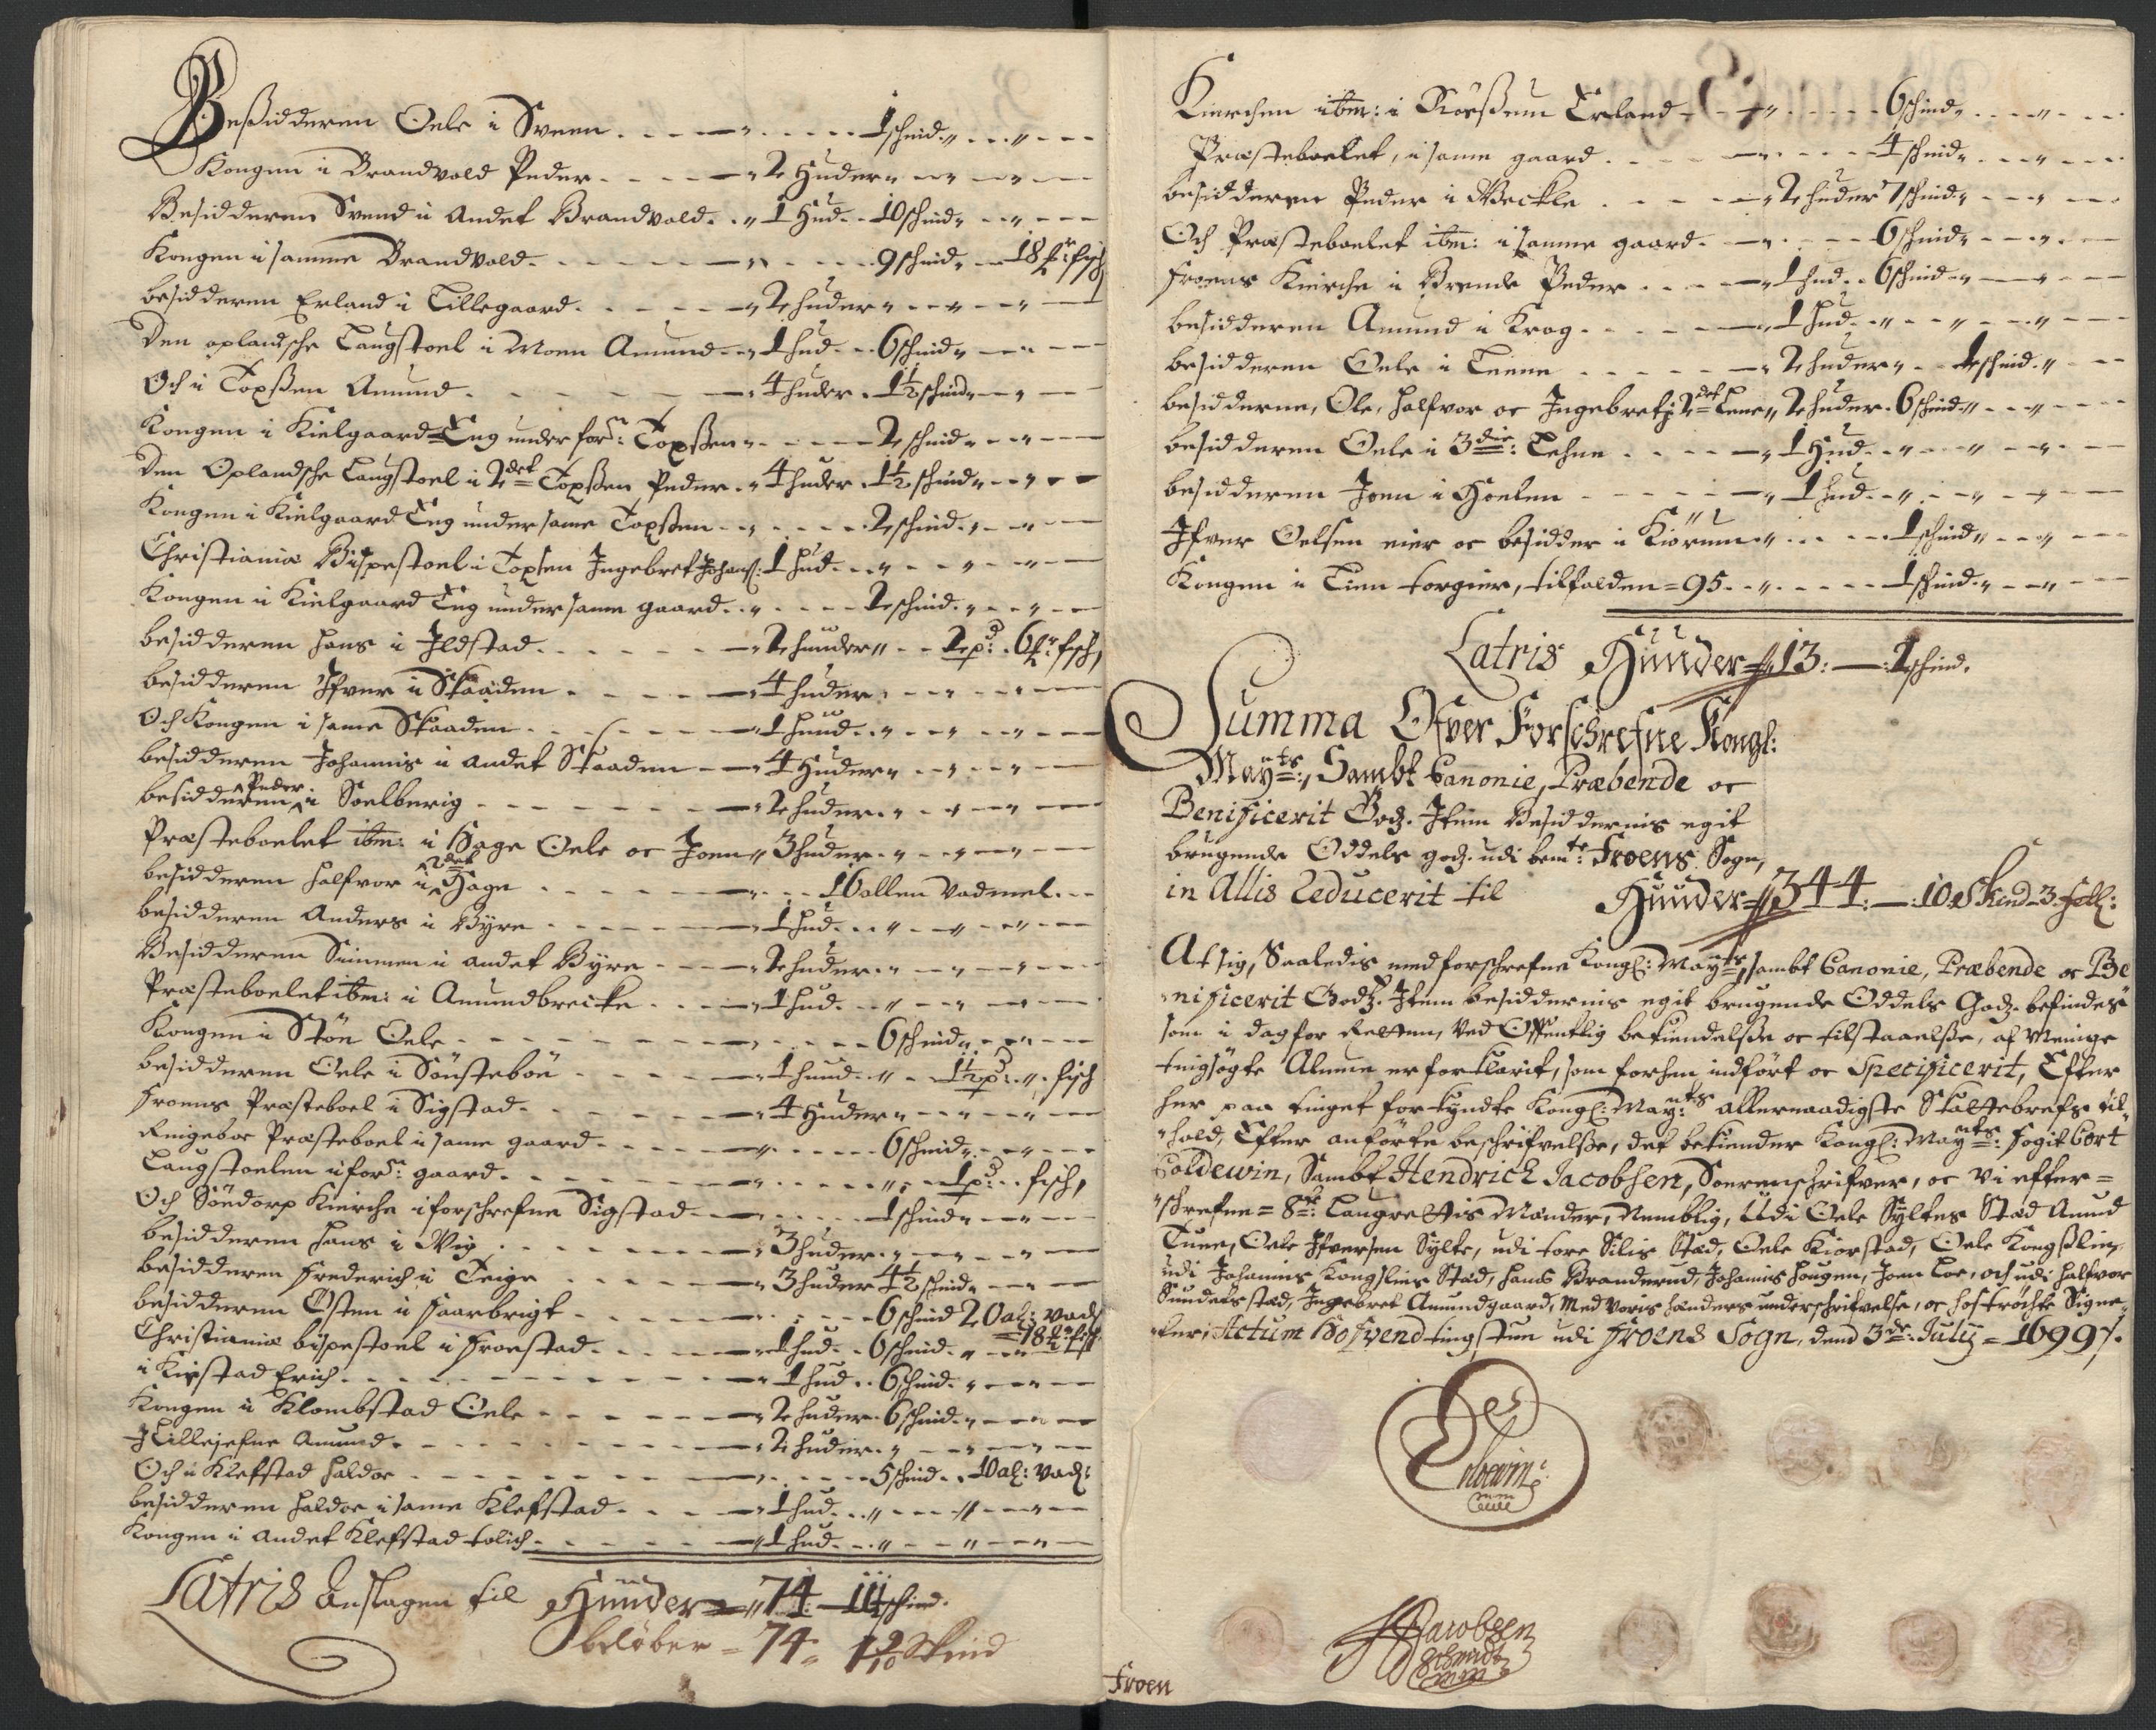 Beßidderen Oele i Sveen - - - - " - - - - 1 schind " - - " - - -
Kongen i Brandvold Peder - - - - " 2 Huder " - " - " - -
Besidderen Svend i Andet Brandvold - - " 1 Hud - - 10 schind " - - " - - -
Kongen i samme Brandvold - - - - - " - - - 9 schind " - - 18 fisch
besidderen Erland i Lillegaard - - - - " 2 huder " - - " - - "
Den oplandsche Laugstoel i Moen Amund - - " 1 hud - - 6 schind " - - -
Och i Toxßen Amund - - - - - " 4 huder - 1½ schind " - " - -
Kongen i Kielgaard Eng under forn: Toxßen " - - - 2 schind " - " - -
Den Oplandsche Laugstoel i 2det Toxßen Peder - " 4 huder 1½ schind " - " - -
Kongen i Kielgaard Eng under same Toxßen - - " - - - 2 schind " - " - -
Christianiæ Bispestoel i Toxsen Ingebret Johanß: 1 hud - - " - - " - -
Kongen i Kielgaard Eng under same gaard - - " - - - 2 schind " - " - -
besidderen Hans i Ildstad - - - - - " 2 huuder " - - 2 pd: 6 fisch,
besidderen Ifver i Skaaden - - - - " 4 huder " - - " - -
Och Kongen i same Skaaden - - - - " 1 huud - - " - - " - -
besidderen Johannis i andet Skaaden - - " 4 Huder " - - " - -
besidderen Peder i Soelberig - - - - - " 2 huder " - " - -
Præsteboelet ibm: i Hage Oele oc Joen " 3 huder " - " - -
besidderen Halfvor i 2det Hage - - - - - " - - 16 allen vadmel - -
besidderen Anders i Byre - - - - - " 1 hud - - " - " - -
Besidderen Simmen i andet Byre - - - " 2 huder " - " - -
Præsteboelet ibm: i Amundbrecke - - - " 1 hud - - " - " - -
Kongen i Stön Oele - - - - - - " - - - 6 schind " - " - -
besidderen Oele i Sönsteböe - - - - " 1 huud - - " - - 1½ pd: " fisch
Froens Præsteboel i Sigstad - - - - - " 4 Huder " - " - -
Ringeboe Præsteboel i same gaard - - - - " - - - 6 schind " - " - -
Laugstoelen i forn: gaard - - - - - " - - - " - - 1 pd: - fisch,
Och Söndorp Kierche i forschrefne Sigstad - - " - - - 1 schind " - -
besidderen Hans i Vig - - - - - - " 3 huder " - " - -
besidderen Frederich i Teige - - - - - " 3 huder 4½ schind " - -
besidderen Østen i Faarbrigt - - - - - " - - - 6 schind 20 al: vad
Christianiæ bispestoel i Froestad - - - - " 1 hud - 6 schind " - 18 fisch
i Kirstad Erich - - - - - - - " 1 hud - - 6 schind " - -
Kongen i Klombstad Oele - - - - - " 2 huder - 6 schind " - -
I Lillejefne Amund - - - - - - " 2 huder " - " - -
Och i Klefstad Haldor - - - - - - " - - - 5 schind - 10 al: vad:
besidderen Haldor i same Klefstad - - - " 1 hud - - " - - " - -
Kongen i Andet Klefstad Tolich - - - - " 1 hud - - " - - " - -
Latris Anslagen til Hunder " 74 - schind.
beløber = 74 " 1 9/10 Skind
Kierchen ibm: i Erland - - " - - - 6 schind " - - " - -
Præsteboelet, i same gaard - - - - " - - - 4 schind " - - " - -
besidderen Peder i Bræckle - - - - " 2 huder 7 schind " - - " - -
Och Præsteboelet ibm: i samme gaard - - " - - - 6 schind " - - " - -
Froens Kierche i Brende Peder - - - - " 1 hud - - 6 schind " - - " - -
besidderen Amund i Krog - - - - - " 1 hud - - " - - " - -
besidderen Oele i Leene - - - - - " 2 huder " - - schind " - -
besidderne, Ole, Halfvor oc Ingebret i 2det Leene " 2 huder - 6 schind " - - " - -
besidderen Oele i 3die: Lehne - - - - " 1 Hud - - " - - " - -
besidderen Joen i Hoelen - - - - - " 1 hud - - " - - " - -
Ifver Oelsen eier oc besidder i Kiörum " - - - 1 schind " - - " - -
Kongen i Lien Torgier, tilfalden = 95 - - " - - - 1 schind " - - " - -
Latris Hunder " 13: — schind.
Summa Ofver Forschrefne Kongl:
Mayts:, Sambt Canonie, Præbende oc
Benificerit Godz. Item Besiddernis egit
brugende Oddels godz. udi bemte: Froens Sogn,
in Allis Reducerit til Hunder " 344 — 10 Skind - 3
At sig, Saaledis med forschrefne Kongl: Mayts:, sambt Canonie, Præbende oc Be
nificerit Godz. Item besiddernis egit brugende Oddels Godz. befindes
som i dag for Retten, ved Offentlig bekiendelsße oc tilstaaelsße, af Menige
tingsögte Almue er forklarit, som forhen indfört oc Specificerit, Efter
her paa tinget forkyndte Kongl: Mayts: allernaadigste Skattebrefs til-
"hold, Efter anförte beschrifvelsße, det bekiender Kongl: Mayts: fogit Cort
Coldewin, Sambt Hendrich Jacobsen, Sorenschrifver, oc vi efter=
"schrefne = 8te: Laugrettis Mænder, Nemblig, Udi Oele Syltes Stæd Amund
Tune, Oele Ifversen Sylte, udi Tore Silis Stæd, Oele Kiorstad, Oele Kongßlin,
udi Johannis Kongslies Stæd, Hans Branderud, Johannis Hougen, Joen Loe, och udi Halfvor
Sundets stæd, Ingebret Amundgaard, Med voris hænders underschrifvelse, oc hoströchte Signe-
"ter, Actum Hofvend tingstun udi Froens Sogn, dend 3de: Julij = 1699 /.
Jacobsen
Froen